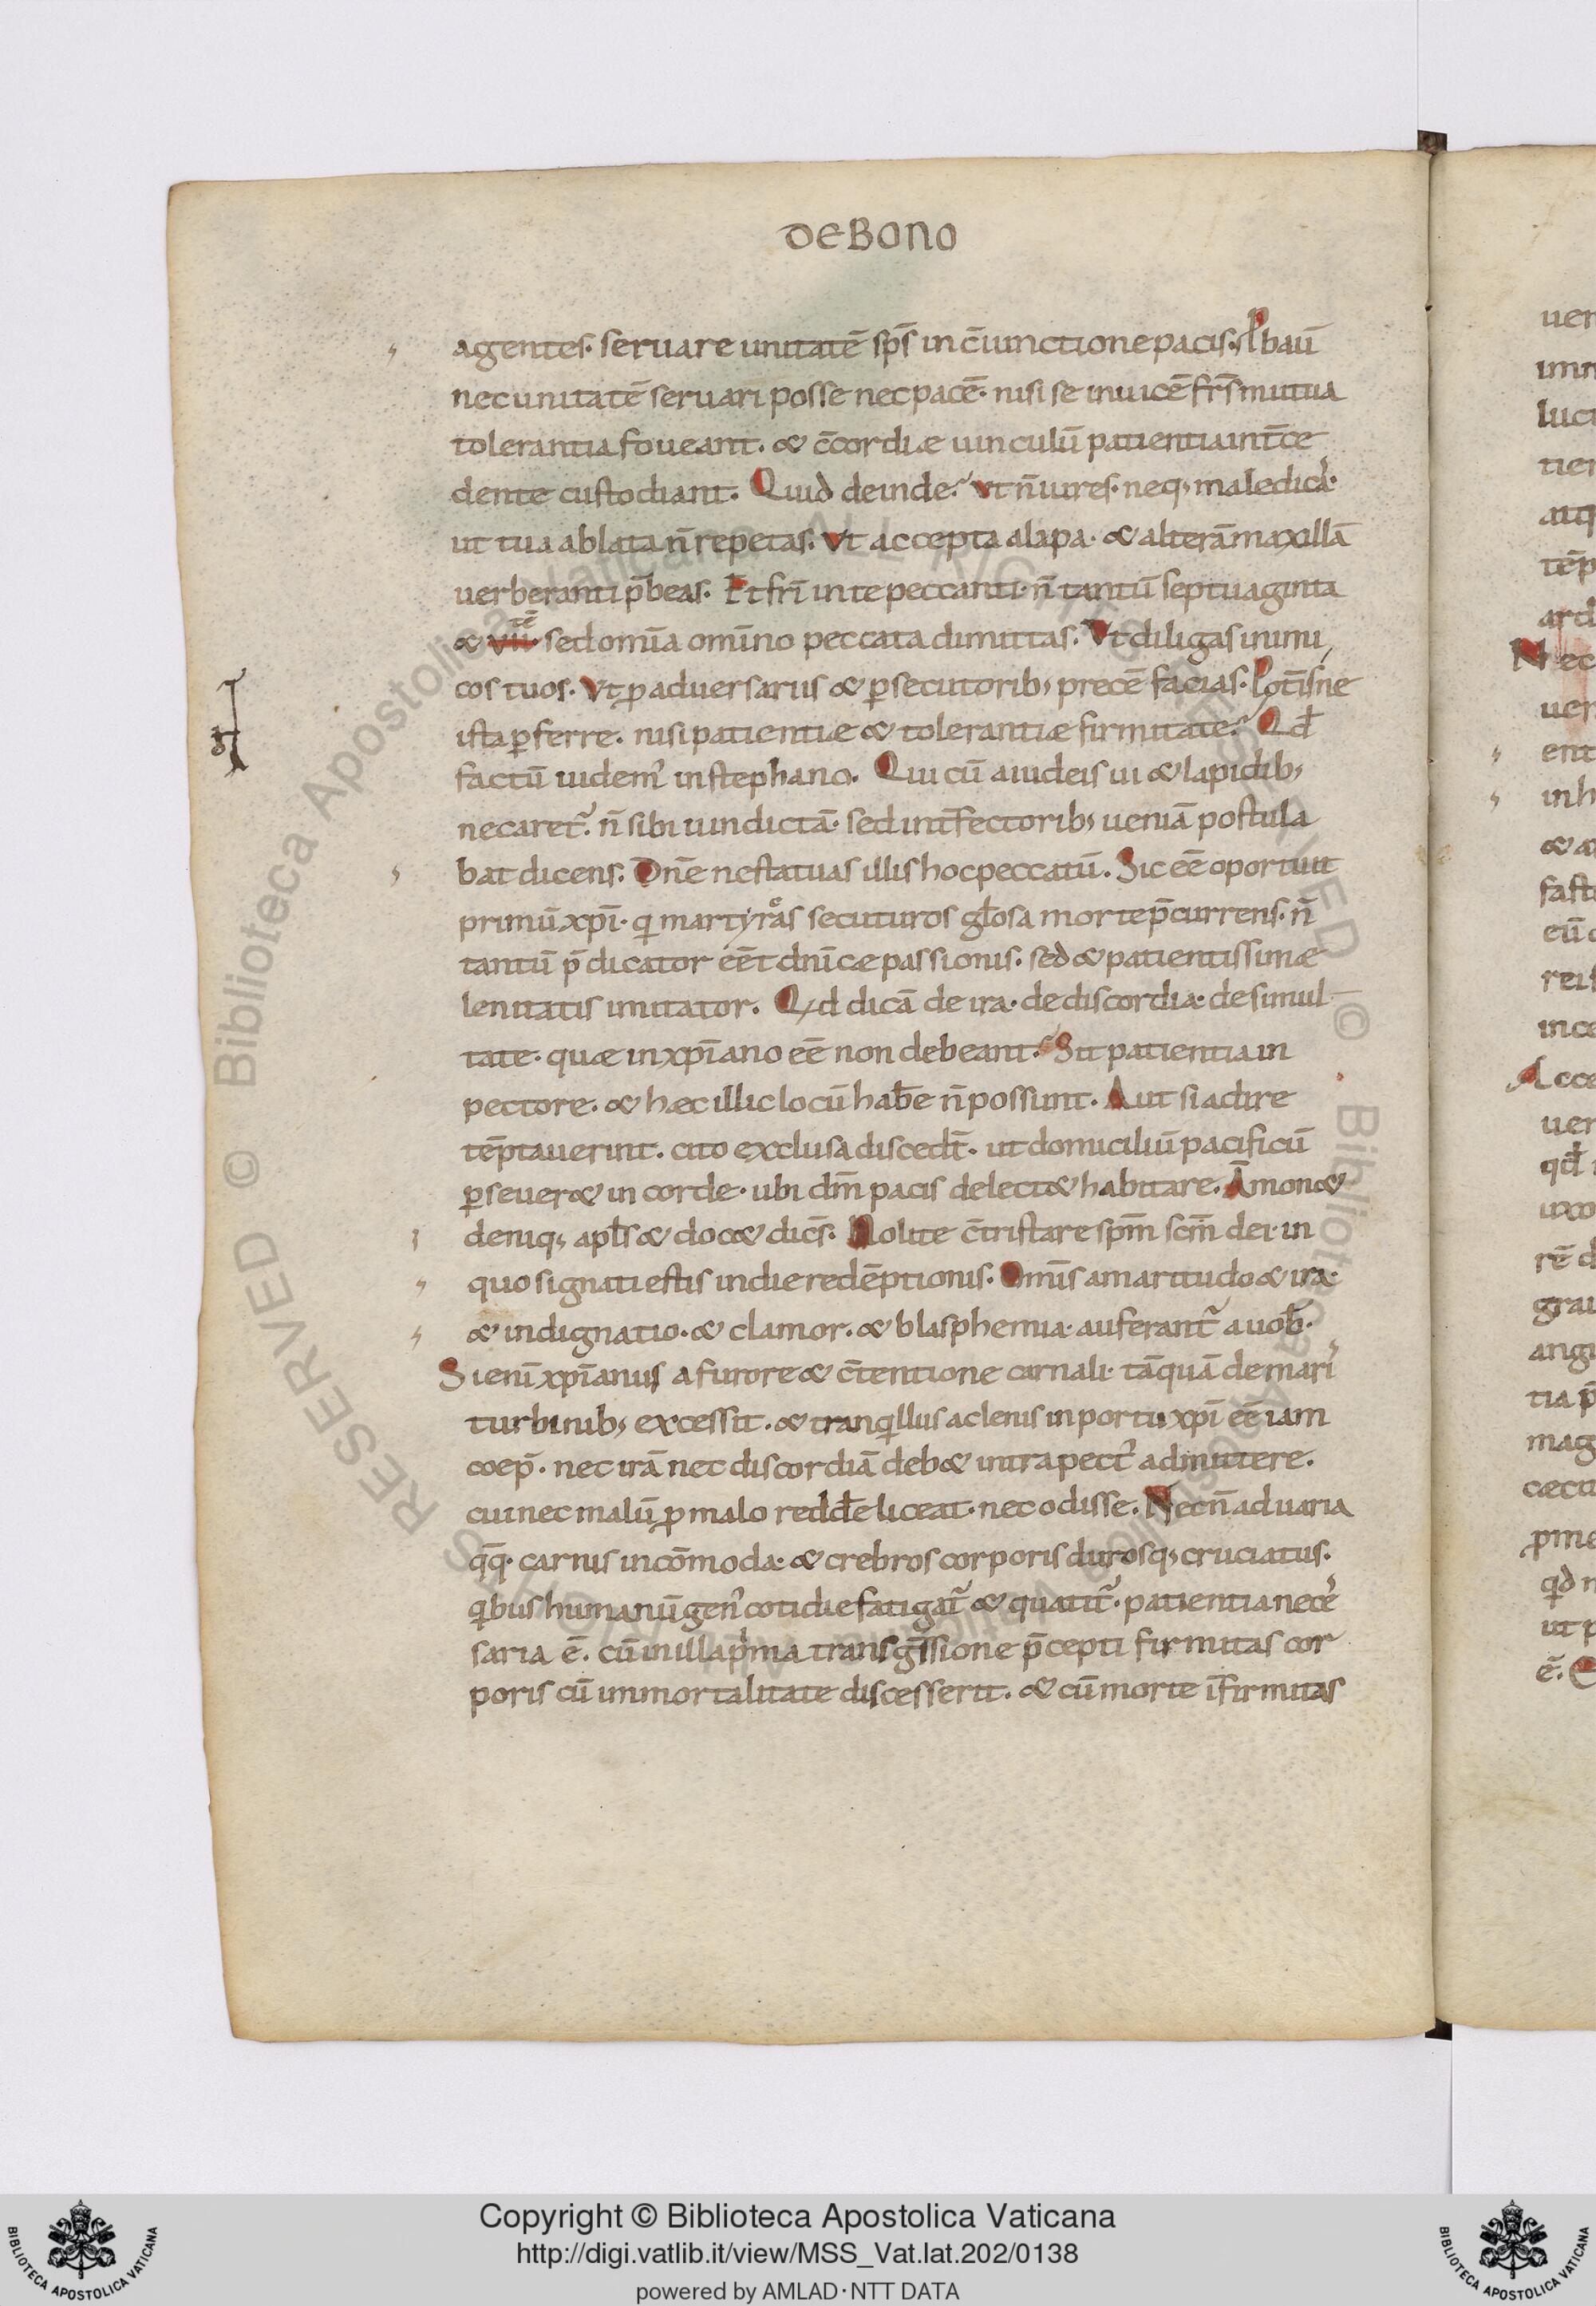 DE BONO
agentes. seruare unitatē sp̄s in c̄iunctione pacis. P̄bau̅
nec unitatē seruari posse nec pacē. nisi se inuicē fr̄s mutua
tolerantia foueant. & c̄cordiæ uinculū patientia int̄ce
dente custodiant. Quid deinde? Vt n̄ iures. neq; maledicā.
ut tua ablata n̄ repetas. Vt accepta alapa. & alterā maxillā
uerberanti p̄beas. Et fr̄i in te peccanti. n̄ tantū septuaginta
& VII. sed om̄ia om̄ino peccata dimittas. Vt diligas inimi
cos tuos. Vt ꝓ aduersariis & ꝑsecutorib; precē facias. Pot̄isne
ista ꝑferre. nisi patientiæ & tolerantiæ firmitate? Qd̄
factū uidem᷒ in stephano. Qui cū a iudeis ui & lapidib;
necaret᷑. n̄ sibi uindictā. sed int̄fectorib; ueniā postula
bat dicens. Dn̄e ne statuas illis hoc peccatū. Sic eē oportuit
primū xp̄i. q̇ martyrås secuturos gl̄osa morte p̄currens. n̄
tantū p̄dicator eēt dn̄icæ passionis. sed & patientissimæ
lenitatis imitator. Qd dicā de ira. de discordia. de simul
tate. quæ in xp̄iano eē non debeant? Sit patientia in
pectore. & hæc illic locū hab̄e n̄ possunt. Aut si adire
tēptauerint. cito exclusa discedt̄. ut domiciliū pacificū
ꝑseuer& in corde. ubi dm̄ pacis delect& habitare. Āmon&
deniq; apl̄s & doc& dic̄s. Nolite c̄tristare sp̄m sc̄m dei. in
quo signati estis in die redēptionis. Om̄is amaritudo & ira.
& indignatio. & clamor. & blasphemia. auferant᷑ a uob̄.
Si eni̅ xp̄ianus a furore & c̄tentione carnali. tāquā de mari᷒
turbinib; excessit. & tranq̇llus ac lenis in portu xp̄i eē iam
coep̄. nec irā nec discordiā deb& intra pect᷒ admittere.
cui nec malū ꝓ malo redd̄e liceat. nec odisse. Nec n̄ ad uaria
q̄q̄. carnis incōmoda. & crebros corporis durosq; cruciatus.
q̇bus humanū gen᷒ cotidie fatigat᷑ & quatit᷑. patientia nece᷒
saria ē. cū in illa ṗma transḡssione p̄cepti firmitas cor
poris cū immortalitate discesserit. & cū morte īfirmitas
Copyright © Biblioteca Apostolica Vaticana
http://digi.vatlib.it/view/MSS_Vat.lat.202/0138
powered by AMLAD·NTT DATA